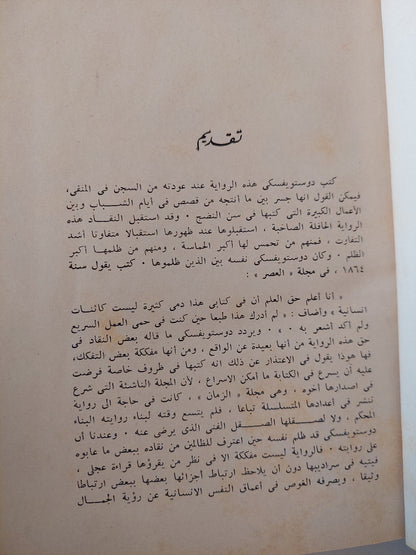 تقديم
كتب دوستويفسكى هذه الرواية عند عودته من السجن فى المنفى،
فيمكن القول انها جسر بين ما أنتجه من قصص فى أيام الشباب وبين
الأعمال الكبيرة التى كتبها فى سن النضج . وقد استقبل النقاد هذه
الرواية الحافلة الصاخبة ، استقبلوها عند ظهورها استقبالا متفاوتا أشد
التفاوت ، فمنهم من تحمس لها أكبر الحماسة ، ومنهم من ظلمها أكبر
الظلم . وكان دوستويفسكى نفسه بين الذين ظلموها . كتب يقول سنة
١٨٦٤ فى مجلة « العصر » :
« أنا أعلم حق العلم أن فى كتابى هذا دمى كثيرة ليست كائنات
انسانية » وأضاف : « لم أدرك هذا طبعا حين كنت فى حمى العمل السريع
ولم أكد أشعر به » . ويردد دوستويفسكى ما قاله بعض النقاد فى
حق هذه الرواية من أنها بعيدة عن الواقع ، ومن أنها مفككة بعض التفكك،
فها هوذا يقول فى الاعتذار عن ذلك انه كتبها فى ظروف خاصة فرضت
عليه أن يسرع فى الكتابة ما أمكن الاسراع ، لأن المجلة الناشئة التى شرع
فى اصدارها أخوه ، وهى مجلة « الزمان » ، كانت فى حاجة الى رواية
تنشر فى أعدادها المتسلسلة تباعا . فلم يتسع وقته لبناء روايته البناء
المحكم ، ولا لصقلها الصقل الفنى الذى يرضى عنه . وعندنا أن
دوستويفسكى قد ظلم نفسه حين اعترف للظالمين من نقاده ببعض ما عابوه
على روايته . فالرواية ليست مفككة الا فى نظر من يقرؤها قراءة عجلى ،
فيتيه فى سراديبها دون أن يلاحظ ارتباط أجزائها بعضها ببعض ارتباطا
وثيقا ، ويصرفه الغوص فى أعماق النفس الانسانية عن رؤية الجمال